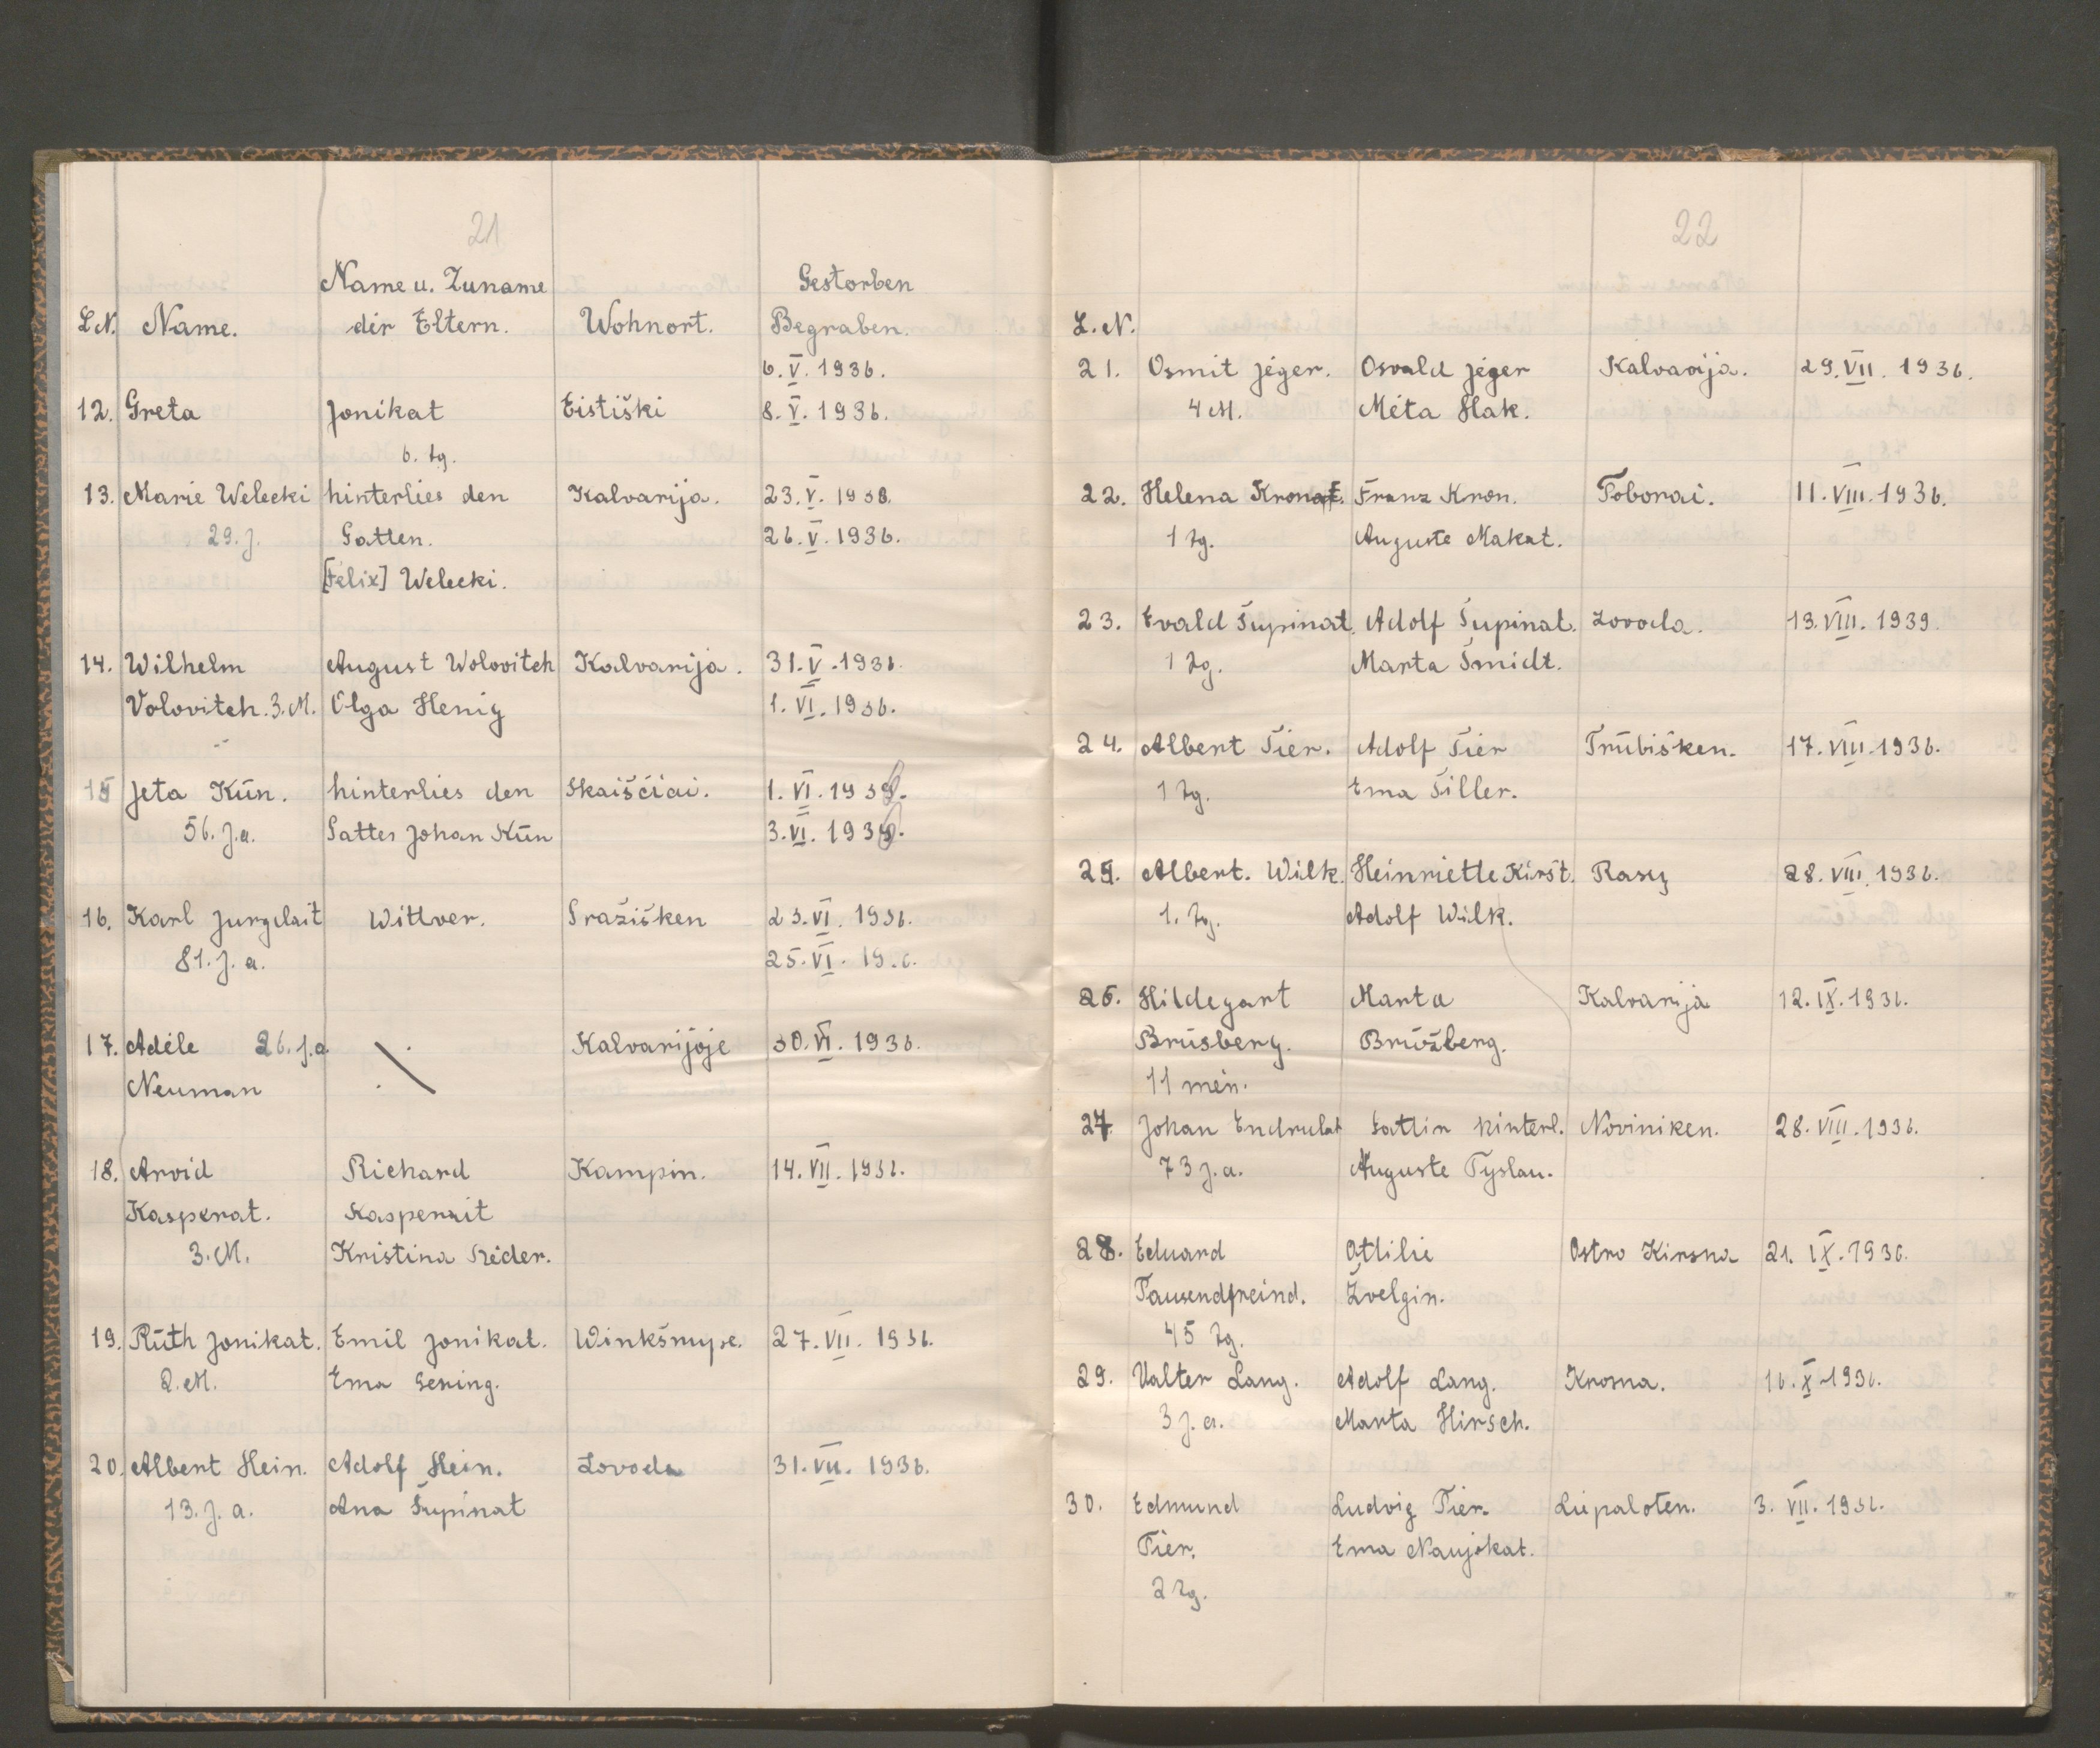 21
Name u. Zuname Gestorben
L.N. Name. der Eltern. Wohnort. Begraben.
6. V. 1936.
12. Greta Jonikat Eistiški 8. V. 1936.
6. tg.
13. Marie Welecki hinterlies den Kalvarija. 23. V. 1936.
29. J. Gatten. 26. V. 1936.
[Felix] Welecki.
14. Wilhelm August Wolovitch Kalvarija. 31. V. 1936.
Volovitch. 3. M. Olga Henig 1. VI. 1936.
15 Jeta Kün. hinterlies den Skaiščiai. 1. VI. 1936.
56. J. a. Gatten Johan Kün 3. VI. 1936.
16. Karl Jurgelait Wittver. Gražišken 23. VI. 1936.
81. J. a. 25. VI.
17. Adéle 26. J. a. Kalvarijoje 30. VI. 1936.
Neuman
18. Arvid Richard Kampin. 14. VII. 1936.
Kasperat. Kasperait
3. M. Kristina Réder.
19. Rūth Jonikat. Emil Jonikat. Winkšnupe. 27. VII. 1936.
2. M. Ema Gening.
20. Albert Hein. Adolf Hein. Zovoda 31. VII. 1936.
13. J. a. Ana Šupinat
22
L. N.
21. Osmit Jéger. Osvald Jéger Kalvarija. 29. VII. 1936.
4 M. Méta Hak.
22. Helena Kron. Franz Kron. Toborai. 11. VIII. 1936.
1 tg. Auguste Makat.
23. Evald Šupinat. Adolf Šupinat. Zovoda. 13. VIII. 1939.
1 tg. Marta Šmidt.
24. Albert Tier. Adolf Tier Trūbišken. 17. VIII. 1936.
1 tg. Ema Šiller.
25. Albert. Wilk. Heinriette Kiršt. Rasy 28. VIII. 1936.
1. tg. Adolf Wilk.
26. Hildegart Marta Kalvarija 12. IX. 1936.
Brūsberg. Brūžberg.
11 mén.
27. Johan Endrulat Gattin hinterl. Noviniken. 28. VIII. 1936.
73 J. a. Auguste Tyslau.
28. Eduard Ottilie Ostro Kirsna 21. IX. 1936.
Tausendfreind. Žvelgin.
45 tg.
29. Valter Lang. Adolf Lang. Krosna. 16. X. 1936.
3 J. a. Marta Hirsch.
30. Edmund Ludvig Tier. Liepaloten. 3. VII. 1936.
Tier. Ema Naujokat.
2 tg.